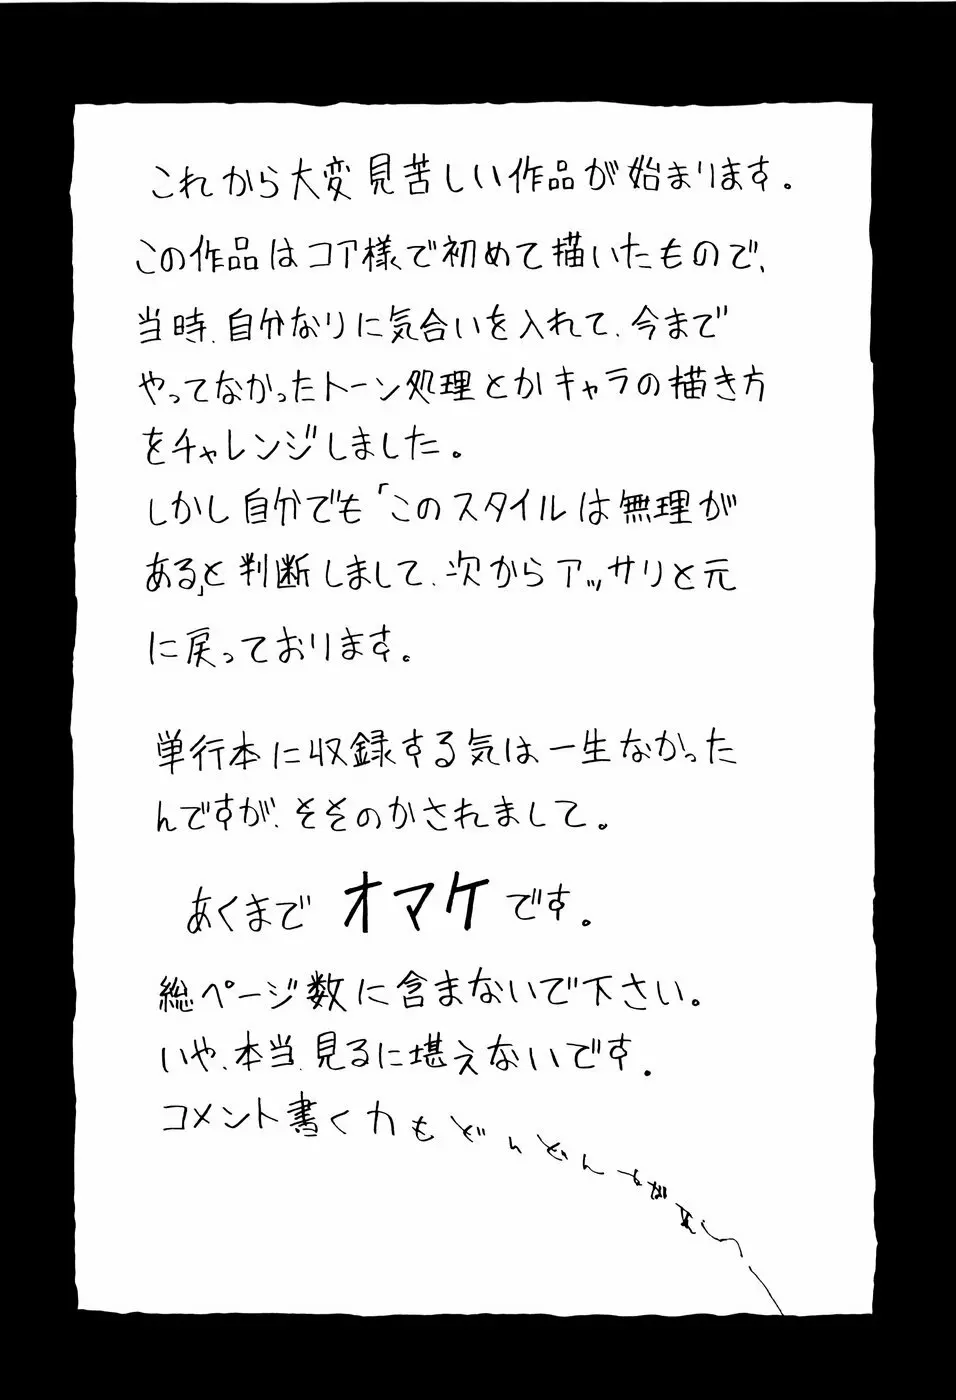 これから大変見苦しい作品が始まります。
この作品はコア様で初めて描いたもので、
当時、自分なりに気合いを入れて、今まで
やってなかったトーン処理とかキャラの描き方
をチャレンジしました。
しかし自分でも「このスタイルは無理が
ある」と判断しまして、次からアッサリと元
に戻っております。
単行本に収録する気は一生なかった
んですが、そそのかされまして。
あくまでオマケです。
総ページ数に含まないで下さい。
いや、本当、見るに堪えないです。
コメント書く力もどんどん